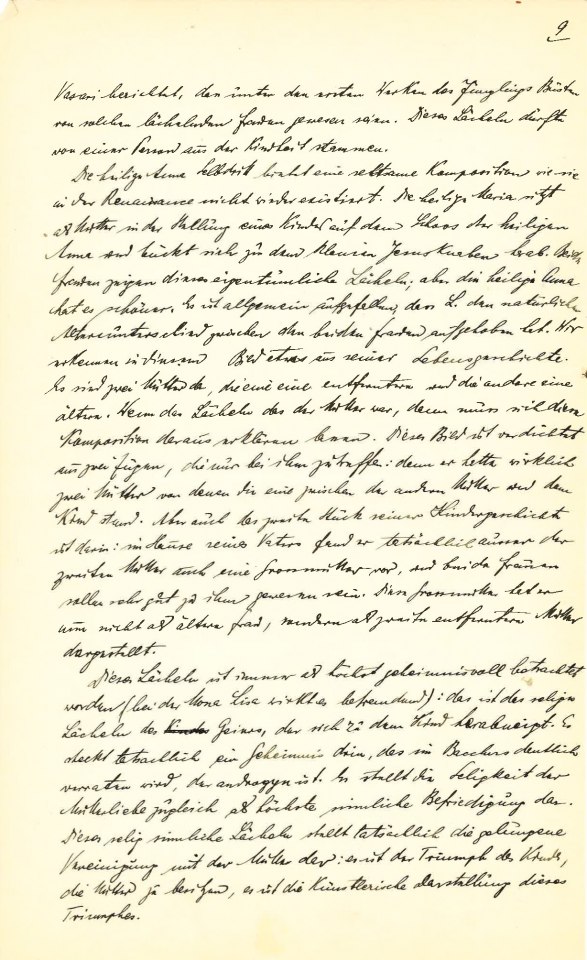 9
Vasari berichtet, dass unter den ersten Werken des Jünglings Büsten
von solchen lächelnden Frauen gewesen seien. Dieses Lächeln dürfte
von einer Person aus der Kindheit stammen.
Die heilige Anna Selbdritt bietet eine seltsame Komposition wie sie
in der Renaissance nicht wieder existiert. Die heilige Maria sitzt
als Mutter in der Haltung eines Kindes auf dem Schoos der heiligen
Anna und bückt sich zu dem kleinen Jesusknaben herab. Beide
Frauen zeigen dieses eigentümliche Lächeln; aber die heilige Anna
hat es schöner. Es ist allgemein aufgefallen, dass L. den natürlichen
Altersunterschied zwischen den beiden Frauen aufgehoben hat. Wir
erkennen in diesem Bild etwas aus seiner Lebensgeschichte.
Es sind zwei Mütter da, die eine eine entferntere und die andere eine
ältere. Wenn das Lächeln das der Mutter war, dann muss sich diese
Komposition daraus erklären lassen. Dieses Bild ist verdichtet
aus zwei Zügen, die nur bei ihm zutreffen: denn er hatte wirklich
zwei Mütter von denen die eine zwischen der andern Mutter und dem
Kind stand. Aber auch das zweite Stück seiner Kindergeschichte
ist darin: im Hause seines Vaters fand er tatsächlich ausser der
zweiten Mutter auch eine Grossmutter vor, und beide Frauen
sollen sehr gut zu ihm gewesen sein. Diese Grossmutter hat er
nun nicht als ältere Frau, sondern als zweite entferntere Mutter
dargestellt.
Dieses Lächeln ist immer als höchst geheimnisvoll betrachtet
worden (bei der Mona Lisa wirkt es befremdend): das ist das selige
Lächeln des Geiers, der sich zu dem Kind herabneigt. Es
steckt tatsächlich ein Geheimnis drin, das im Bacchus deutlich
verraten wird, der androgyn ist. Es stellt die Seligkeit der
Mutterliebe zugleich als höchste sinnliche Befriedigung dar.
Dieses selig sinnliche Lächeln stellt tatsächlich die gelungene
Vereinigung mit der Mutter dar: es ist der Triumph des Kindes,
die Mutter zu besitzen, es ist die künstlerische Darstellung dieses
Triumphes.